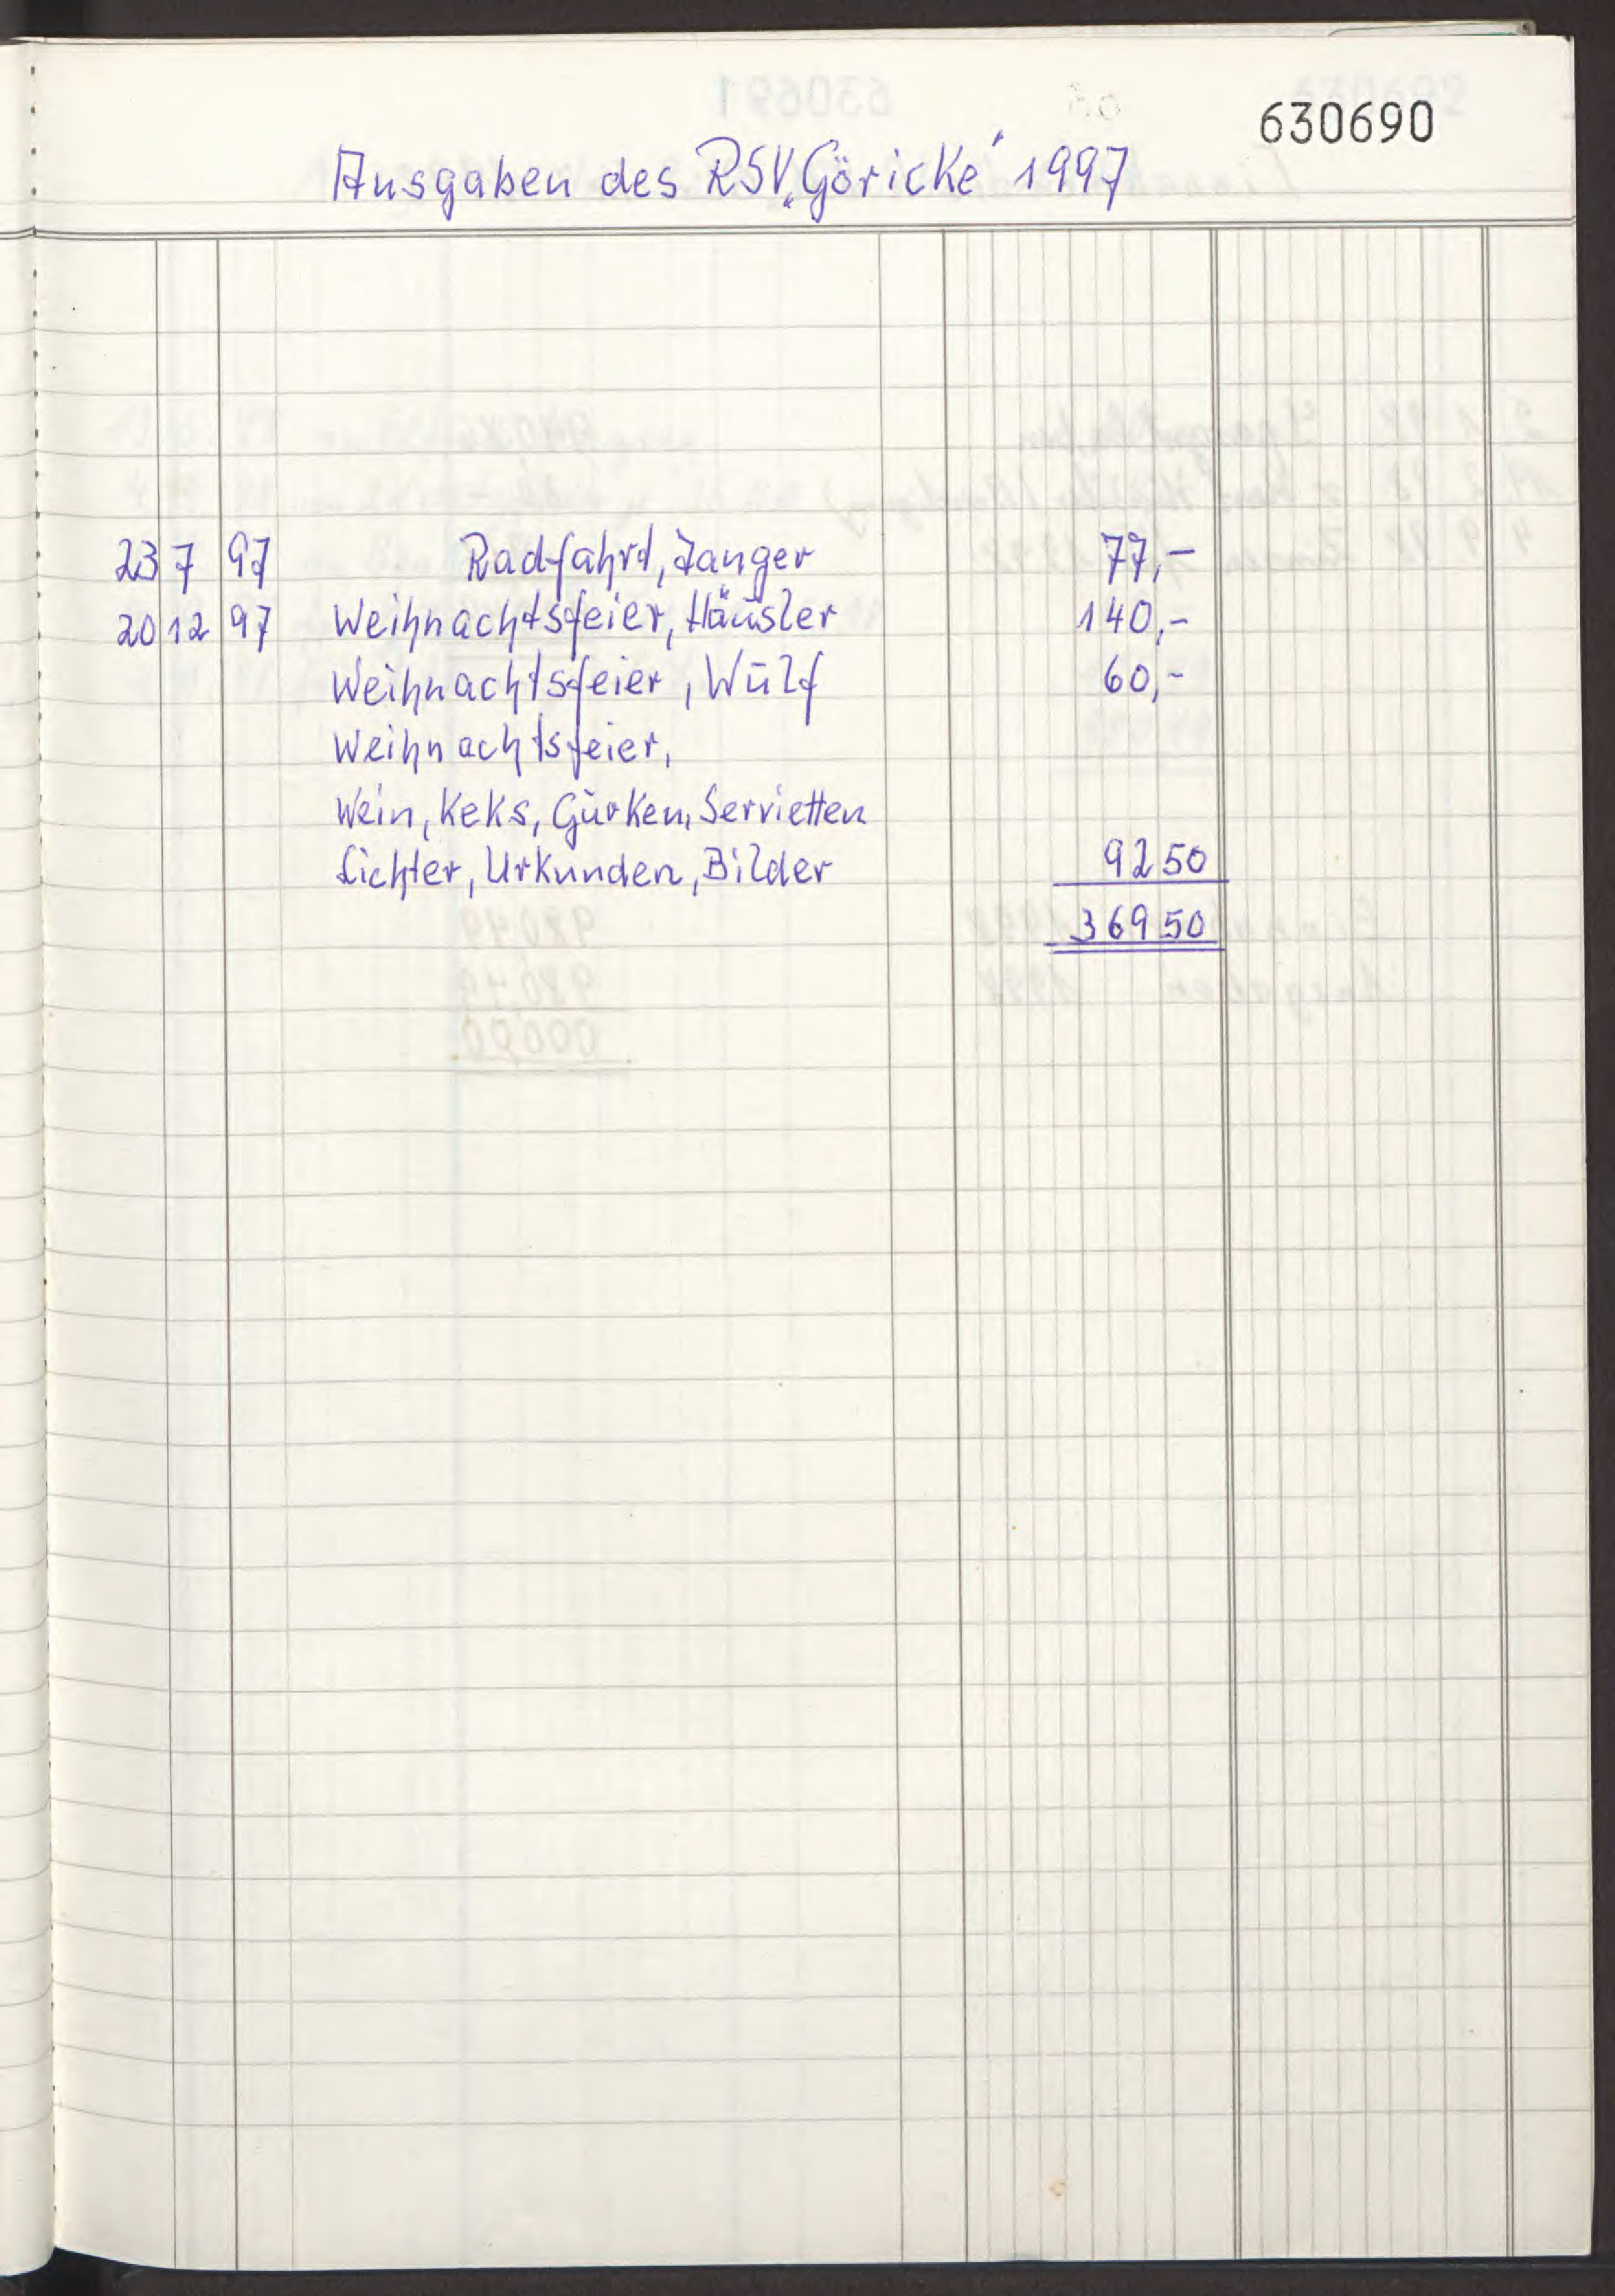 630690
Ausgaben des RSV „Göricke" 1997
23 7 97 Radfahrt, Zanger 77,-
20 12 97 Weihnachtsfeier, Häusler 140,-
Weihnachtsfeier, Wulf 60,-
Weihnachtsfeier,
Wein, Keks, Gurken, Servietten
Lichter, Urkunden, Bilder 92 50
369 50